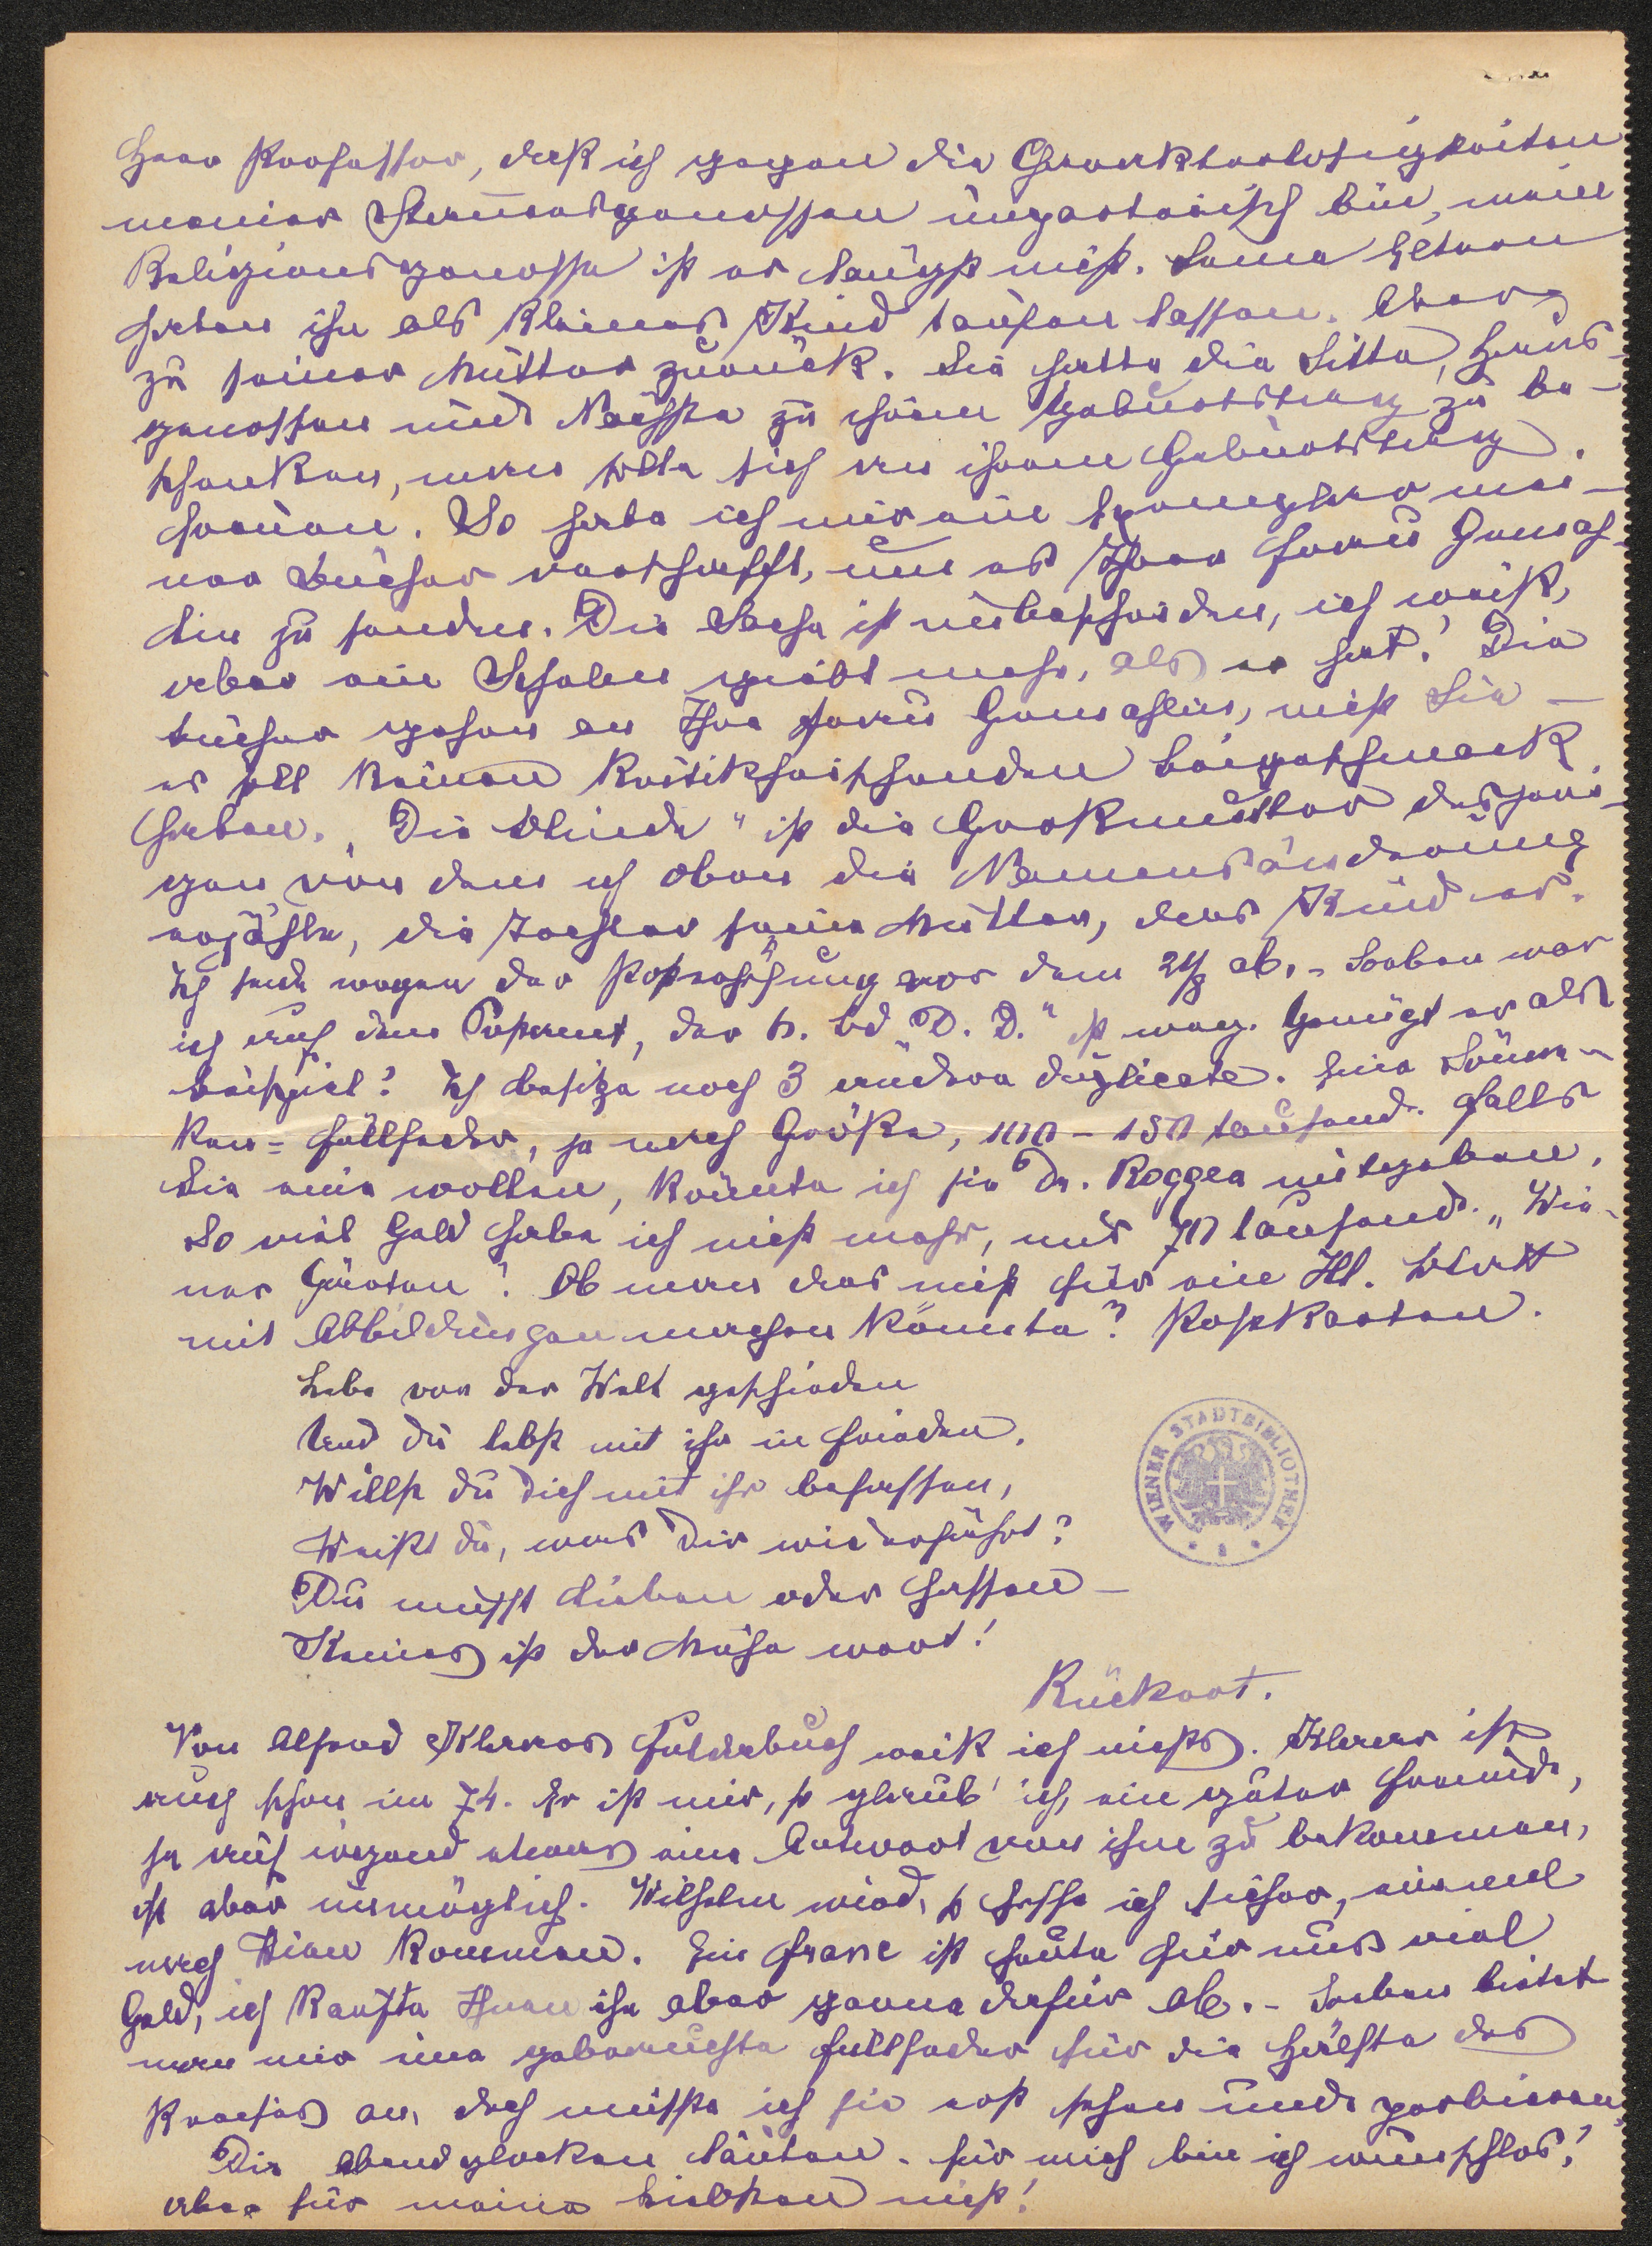 Herr Professor, daß ich gegen die Charakterlosigkeiten
meiner Stammesgenossen ungerecht bin, mein
Religionsgenosse ist er längst nicht. Seine Eltern
haben ihn als kleines Kind taufen lassen. Aber
zu seiner Mutter zurück. Sie hatte die Sitte, Haus-
genossen und Nächste zu ihrem Geburtstag zu be-
schenken, man solle sich an ihrem Geburtstag
freuen. So habe ich mir ein Exemplar mei-
ner Bücher verschafft, um es Ihrer Frau Gemah-
lin zu senden. Die Sache ist unbescheiden, ich weiß,
aber ein Schelm gibt mehr, als er hat! Die
Bücher gehen an Ihre Frau Gemahlin, nicht Sie –
es soll keinen Kritik heischenden Beigeschmack
haben. „Die Blinde" ist die Großmutter desjeni-
gen von dem ich oben die Namensänderung
erzähle, die Tochter seine Mutter, das Kind er.
Ich sende wegen der Portoerhöhung vor dem 24/8 ab. – Soeben war
ich auf dem Postamt, der h. Bd „D. D." ist weg. Genügt er als
Beispiel? Ich besitze noch 3 andere Duplicate. Eine Sönne-
ken-Füllfeder, je nach Größe, 100 – 150 tausend. Falls
Sie eine wollen, könnte ich sie Dr. Roggea mitgeben.
So viel Geld habe ich nicht mehr, nur 70 tausend. „Wie-
ner Gärten"! Ob man das nicht für ein Ill. Blatt
mit Abbildungen machen könnte? Postkarten.
Lebe von der Welt geschieden
Und du lebst mit ihr in Frieden.
Willst du dich mit ihr befassen,
Weißt du, was dir widerfährt?
Du musst lieben oder hassen –
Keines ist der Mühe wert!
Rückert.
Von Alfred Klaars Fuldabuch weiß ich nichts. Klaar ist
auch schon im 74. Er ist mir, so glaub' ich, ein guter Freund,
ja auf irgend etwas eine Antwort von ihm zu bekommen,
ist aber unmöglich. Wilhelm wird, so hoffe ich sicher, einmal
nach Wien kommen. Ein Franc ist heute für uns viel
Geld, ich kaufte Ihnen ihn aber gerne dafür ab. – Soeben bietet
man mir eine gebrauchte Füllfeder für die Hälfte des
Preises an, doch müßte ich sie erst sehen und probieren.
Die Abendglocken läuten. Für mich bin ich wunschlos!
aber für meine Liebsten nicht!
WIENER STADTBIBLIOTHEK